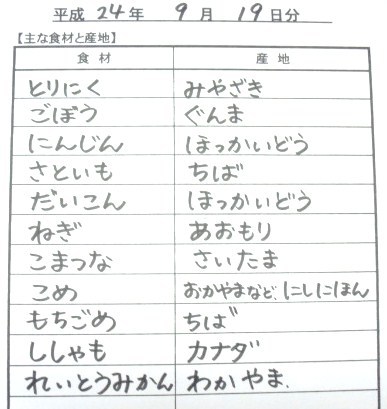 平成 24年 9月 19日分
【主な食材と産地】
食材 産地
とりにく みやざき
ごぼう ぐんま
にんじん ほっかいどう
さといも ちば
だいこん ほっかいどう
ねぎ あおもり
こまつな さいたま
こめ おかやまなど、にしにほん
もちごめ ちば
ししゃも カナダ
れいとうみかん わかやま.